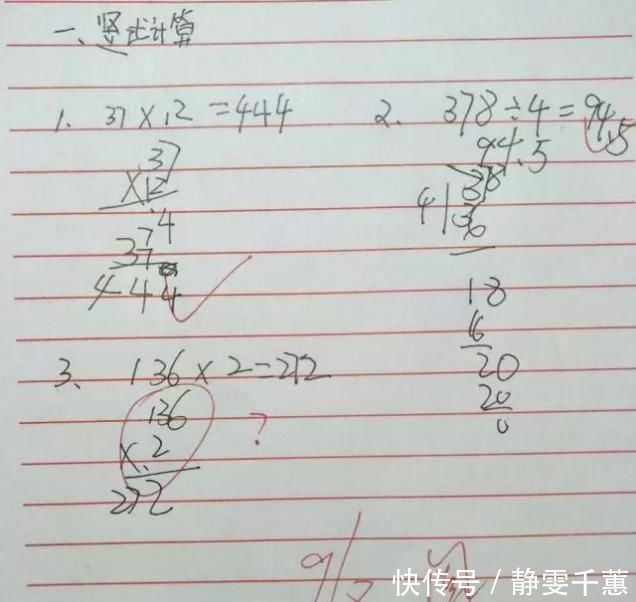 一、竖式计算
1. 37×12=444
37
×12
74
37
444
2. 378÷4=94.5
94.5
4
36
18
16
20
20
0
3、136×2=272
136
×2
272
?
快传号/静雯千蕙